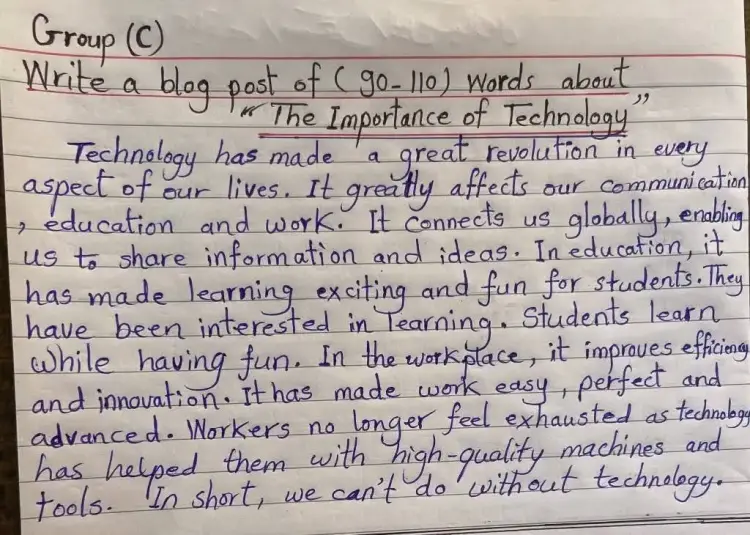 Group (C)
Write a blog post of (90-110) words about
"The Importance of Technology"
Technology has made a great revolution in every
aspect of our lives. It greatly affects our communication
, education and work. It connects us globally, enabling
us to share information and ideas. In education, it
has made learning exciting and fun for students. They
have been interested in learning. Students learn
while having fun. In the workplace, it improves efficiency
and innovation. It has made work easy, perfect and
advanced. Workers no longer feel exhausted as technology
has helped them with high-quality machines and
tools. In short, we can't do without technology.